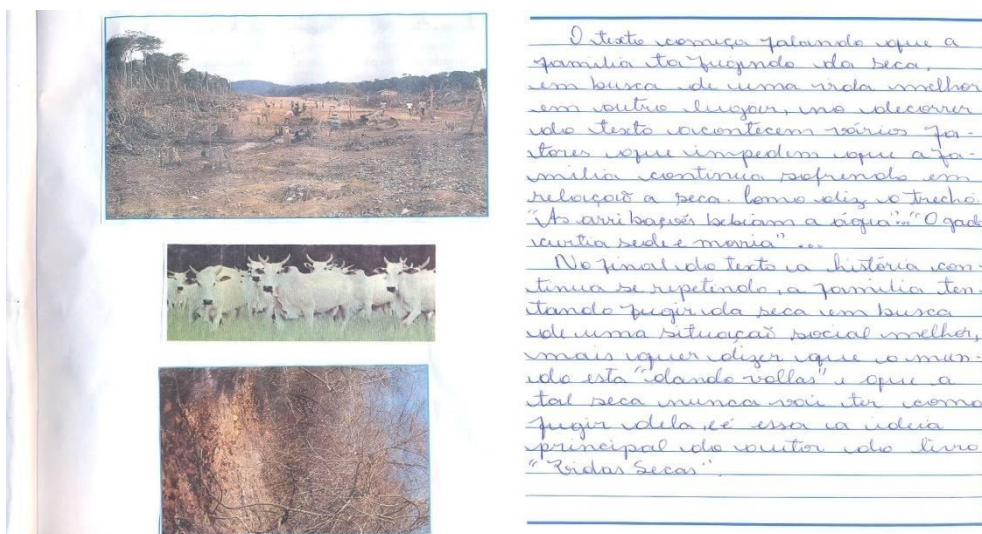 O texto começa falando que a
familia ta fugindo da seca,
em busca de uma vida melhor
em outro lugar, no decorrer
do texto acontecem vários fa-
tores que impedem que a fa-
milia continua sofrendo em
relaçaõ a seca. Como diz o trecho.
"As arribaçoẽs bebiam a água"... "O gado
curtia sede e morria" ...
No final do texto a história con-
tinua se repetindo, a familia ten-
tando fugir da seca em busca
de uma situaçaõ social melhor,
mais quer dizer que o mun-
do esta "dando voltas" e que a
tal seca nunca vai ter como
fugir dela, é essa a ideia
principal do autor do livro
"Vidas Secas".